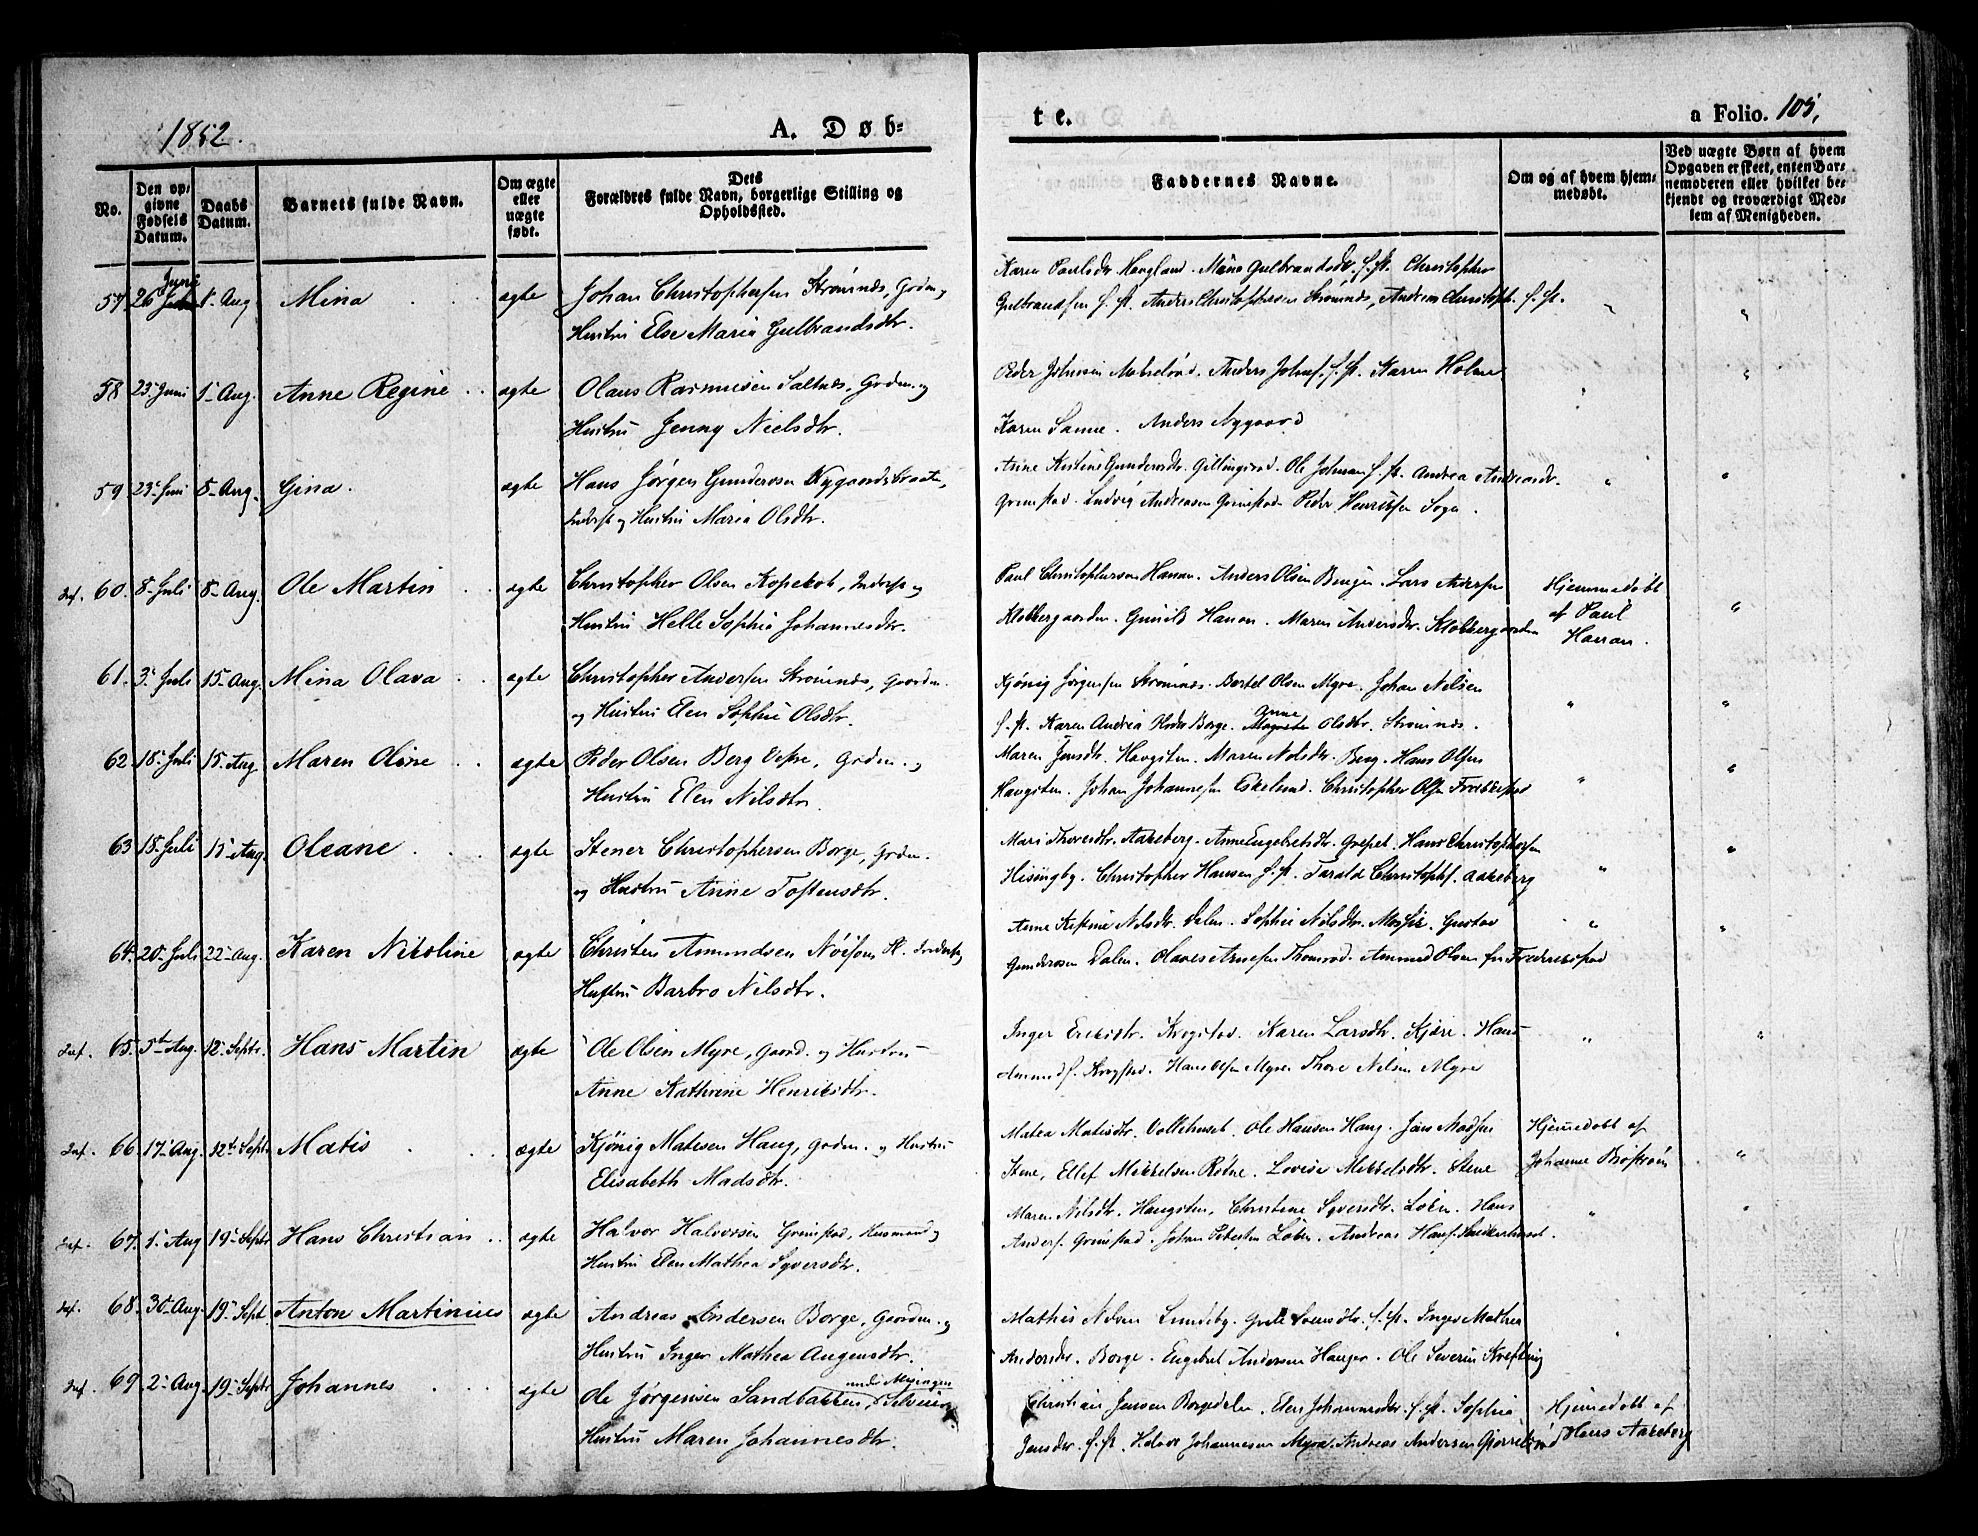 1852.
A. Døb-
te.
a Folio. 105,
No.
Den op-
givne
Fødsels
Datum.
Daabs
Datum.
Barnets fulde Navn.
Om ægte
eller
uægte
født.
Dets
Forældres fulde Navn, borgerlige Stilling og
Opholdssted.
Faddernes Navne.
Om og af hvem hjem-
medøbt.
Ved uægte Børn af hvem
Opgaven er skeet, enten Bar-
nemoderen eller hvilket be-
kjendt og troværdigt Med-
lem af Menigheden.
57 26 Juni 1 Aug Mina ægte Johan Christophersen Strømnes, Grdm. og
Hustru Else Maria Gulbrandsdtr.
Karen Paulsdtr Haugland. Gulbrandsdtr. s. st. Christopher
Gulbrandsen s. st. Anders Christophersen Strømnes, Andreas Christoph. s. st.
58 23 Juni 1 Aug. Anne Regine ægte Olaus Rasmusen Saltnes, Grdm. og
Hustru Jenny Nielsdtr.
Peder Johnsen. Anders Johns. s. st. Karen Holme
Karen Sanne. Anders Nygaard
59 23 Juni 8 Aug. Gina. ægte Hans Jørgen Gundersen Nygaardsbraate,
Inderst og Hustru Maria Olsdtr.
Anne Kistine Gundersdtr. Gillingsrød. Ole Johnsen s. st. Andrea Andreasdr.
Grimstad. Ludvig Andreasen Grimstad. Peder Henriksen
60. 8 Juli 8 Aug. Ole Martin ægte Christopher Olsen Kopekot, Inderst og
Hustru Helle Sophie Johannesdtr.
Paul Christophersen Hanan. Anders Olsen. Lars Andersen
Klokkergaarden. Gunild Hanan. Maren Andersdtr. Klokkergaarden
Hjemmedøbt
af Paul
Hanan.
61. 3 Juli 15 Aug. Mina Olava ægte Christopher Andersen Strømnes, Gaardm.
og Hustru Elen Sophie Olsdtr.
Kjønig Jørgensen Strømnes. Bertel Olsen Myre. Johan Nilsen
s. st. Karen Andrea Borge. Anne Olsdtr. Strømnes.
62 18 Juli 15 Aug Maren Oline ægte Peder Olsen Berg Vestre, Grdm. og
Hustru Elen Nilsdtr.
Maren Jensdtr. Haugsten. Maren Nilsdtr. Berg. Hans Olsen
Haugsten. Johan Johannesen Eskelund. Christopher Olsen Fredrikstad
63 18 Juli 15 Aug. Oleane ægte Stener Christophersen Borge, Grdm.
og Hustru Anne Tostensdtr.
Mari Thoresdtr. Aakeberg. Anne Engebretsdtr. Hans Christophersen
Hisingby. Christopher Hansen s. st. Tarald Christophs. Aakeberg
64. 20 Juli 22 Aug. Karen Nicoline ægte Christen Amundsen
Hustru Barbro Nilsdtr.
Anne Kistine Nilsdtr. Dalen. Sophie Nilsdtr. Gustav
Gundersen Dalen. Amund Olsen fra Frederikstad
65. 5te Aug. 12 Septr. Hans Martin ægte Ole Olsen Myre, Gaard. og Hustru
Anne Kathrine Henriksdtr.
Inger Eriksdtr. Krogstad. Karen Larsdtr. Kjære. Hans
Amunds. Krogstad. Hans Olsen Myre. Thore Nilsen Myre
66 17 Aug. 12te Septr. Matis ægte Kjønig Matesen Haug, Grdm. og Hustru
Elisabeth Madsdtr.
Matea Matisdtr. Vollehuset. Ole Hansen Haug. Jens Madsen
Stene, Ellef Mikkelsen Rødne. Lovise Mikkelsdtr. Stene
Hjemedøbt af
Johanne Brostrøm
67. 1 Aug 19 Septr Hans Christian ægte Halvor Halvorsen Grimstad, Husmand og
Hustru Elen Mathea Syversdtr.
Maren Nilsdtr. Haugsten. Christine Syversdtr. Løen. Hans
Anders. Grimstad. Johan Petersen Løken. Andreas Hans.
68. 30 Aug. 19 Sept. Anton Martinius ægte Andreas Andersen Borge, Gaardm. og
Hustru Inger Mathea Augensdtr.
Mathis Nilsen Lundeby. s. st. Inger Mathea
Andersdtr. Borge. Engebret Andersen Hauger. Ole Severin Krefting
69. 2 Aug. 19 Septr Johannes ægte Ole Jørgensen Sandbakken,
Hustru Maren Johannesdtr.
Christian Jensen Borgedalen. Elen Johannesdtr. s. st. Sophia
Jensdtr. s. st. Halvor Johannesen Myra. Andreas Andersen
Hjemedøbt af
Hans Aakeberg